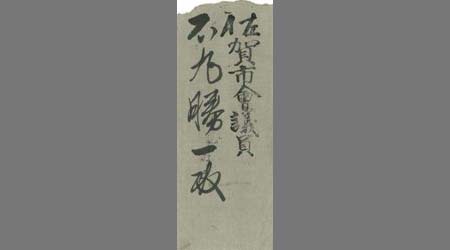 佐賀市會議員
石丸勝一敬